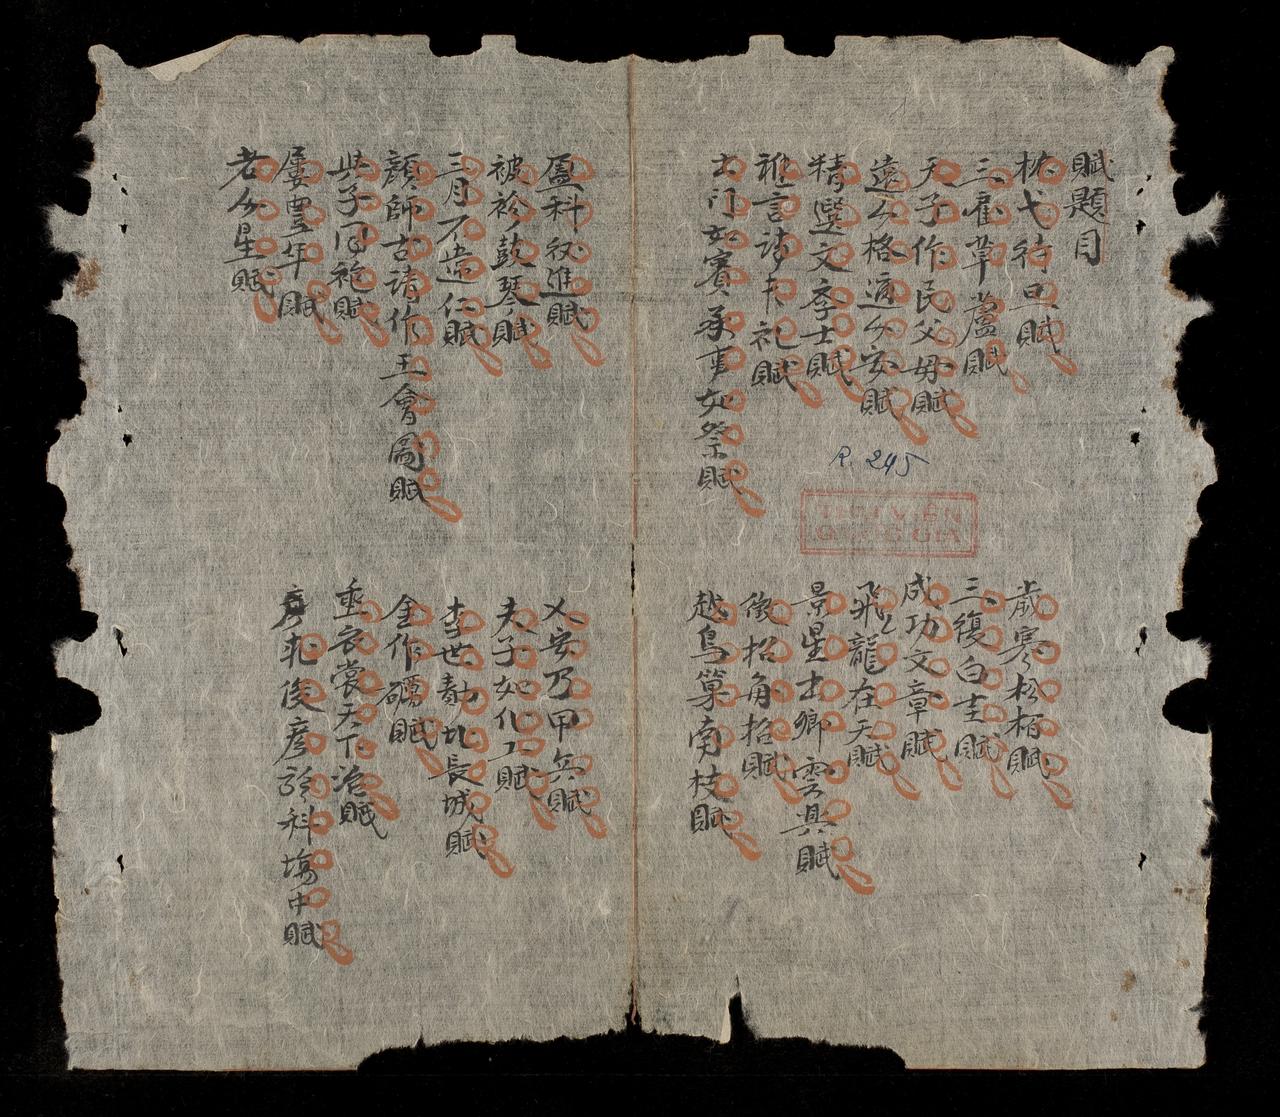 賦題目
枕戈待旦賦
三顧草廬賦
天子作民父母賦
遠人格邇人安賦
精選文学士賦
雅言詩书礼賦
出门如賓承事如祭賦
歲寒松栢賦
三復白圭賦
成功文章賦
飛龍在天賦
景星出卿雲興賦
徵招角招賦
越鳥巢南枝賦
R. 245
THƯ VIỆN
QUỐC GIA
盈科後進賦
被袗鼓琴賦
三月不違仁賦
顏師古請作王會圖賦
與子同袍賦
屢豐年賦
老人星賦
乂安乃甲兵賦
夫子如化工賦
李世勣比長城賦
金作礪賦
垂衣裳天下治賦
俊彥於科塲中賦